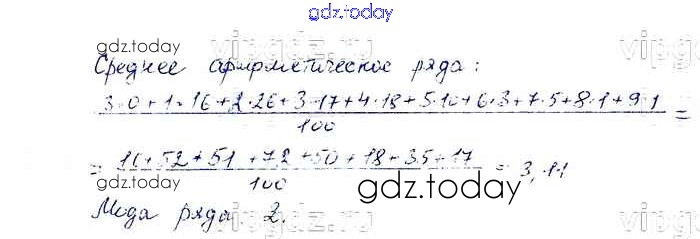 gdz.today
gdz.today vipgdz.ru vipgdz
Среднее арифметическое ряда:
3·0+1·16+2·26+3·17+4·18+5·10+6·3+7·5+8·1+9·1
100 =
= 16+52+51+72+50+18+35+17 = 3,11
100
gdz.today
Мода ряда 2.